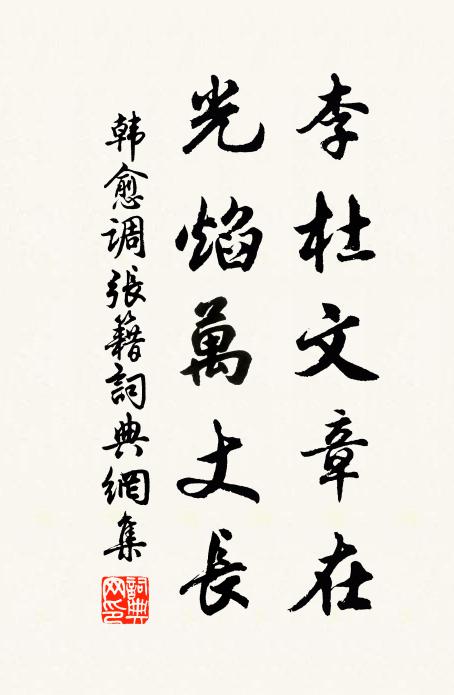 李杜文章在
光焰萬丈長
韓愈调張籍詞典網集
詞典网印